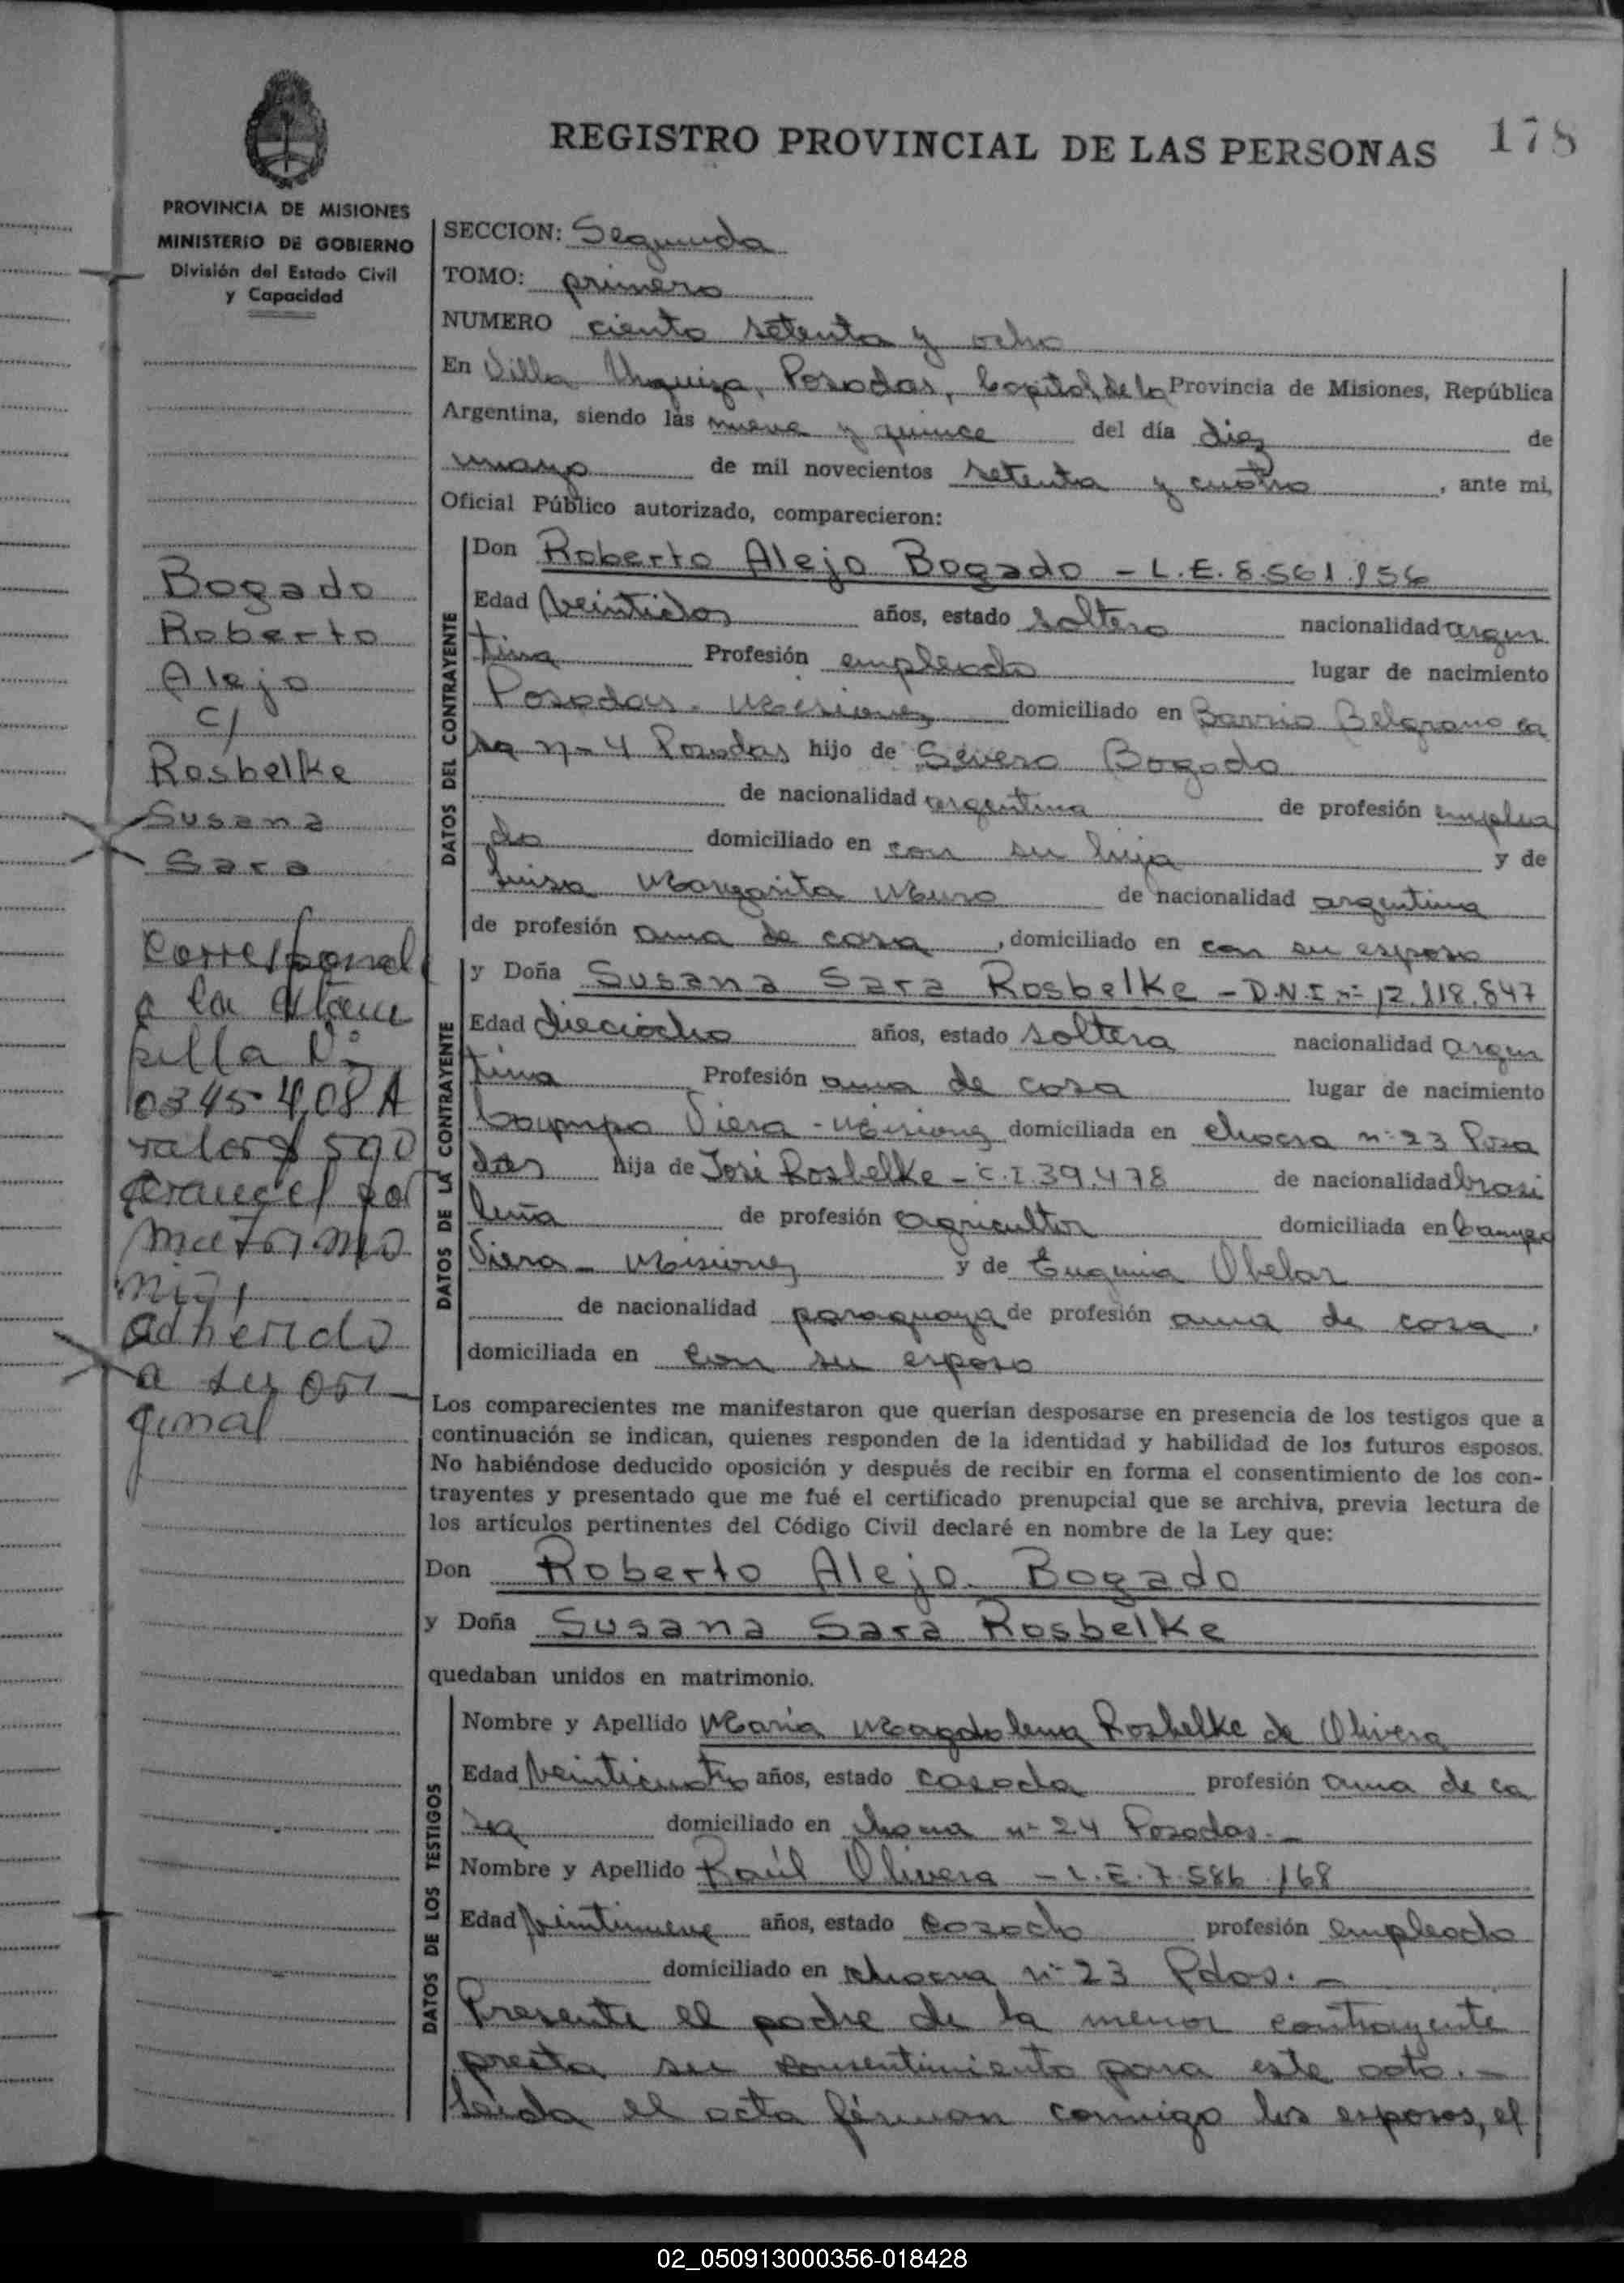 REGISTRO PROVINCIAL DE LAS PERSONAS
178
PROVINCIA DE MISIONES
MINISTERIO DE GOBIERNO
División del Estado Civil
y Capacidad
Bogado
Roberto
Alejo
c/
Rosbelke
Susana
Sara
Corresponde
a la estam
pilla Nº
0345408 A
valor $ 590
arancel por
matrimo
nio,
adherido
a su ori
ginal
SECCION: Segunda
TOMO: primero
NUMERO ciento setenta y ocho
En Villa Urquiza, Posadas, Capital de la Provincia de Misiones, República
Argentina, siendo las nueve y quince del día diez de
mayo de mil novecientos setenta y cuatro, ante mi,
Oficial Público autorizado, comparecieron:
DATOS DEL CONTRAYENTE
Don Roberto Alejo Bogado - L.E. 8.561.156
Edad veintidos años, estado soltero nacionalidad argen
tina Profesión empleado lugar de nacimiento
Posadas - Misiones domiciliado en Barrio Belgrano ca
sa n- 4 Posadas hijo de Severo Bogado
de nacionalidad argentina de profesión emplea
do domiciliado en con su hijo y de
Luisa Margarita Muro de nacionalidad argentina
de profesión ama de casa, domiciliado en con su esposo
DATOS DE LA CONTRAYENTE
y Doña Susana Sara Rosbelke - D.N.I nº 12.118.847
Edad dieciocho años, estado soltera nacionalidad argen
tina Profesión ama de casa lugar de nacimiento
Campo Viera - Misiones domiciliada en chacra nº 23 Posa
das hija de José Rosbelke - C.I 39.478 de nacionalidad brasi
leña de profesión agricultor domiciliada en Campo
Viera - Misiones y de Eugenia Obelar
de nacionalidad paraguaya de profesión ama de casa,
domiciliada en con su esposo
Los comparecientes me manifestaron que querían desposarse en presencia de los testigos que a
continuación se indican, quienes responden de la identidad y habilidad de los futuros esposos.
No habiéndose deducido oposición y después de recibir en forma el consentimiento de los con-
trayentes y presentado que me fué el certificado prenupcial que se archiva, previa lectura de
los artículos pertinentes del Código Civil declaré en nombre de la Ley que:
Don Roberto Alejo Bogado
y Doña Susana Sara Rosbelke
quedaban unidos en matrimonio.
DATOS DE LOS TESTIGOS
Nombre y Apellido María Magdalena Rosbelke de Olivera
Edad veinticuatro años, estado casada profesión ama de ca
sa domiciliado en chacra nº 24 Posadas. -
Nombre y Apellido Raúl Olivera - L.E. 7.586.168
Edad veintinueve años, estado casado profesión empleado
domiciliado en chacra nº 23 Pdas. -
Presente el padre de la menor contrayente
presta su consentimiento para este acto. -
Leída el acta firman conmigo los esposos, el
02_050913000356-018428